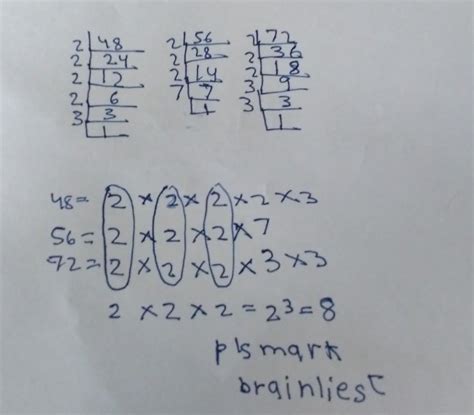 2 | 48
2 | 24
2 | 12
2 | 6
3 | 3
1
2 | 56
2 | 28
2 | 14
7 | 7
1
2 | 72
2 | 36
2 | 18
3 | 9
3 | 3
1
48 = 2 × 2 × 2 × 2 × 3
56 = 2 × 2 × 2 × 7
72 = 2 × 2 × 2 × 3 × 3
2 × 2 × 2 = 2³ = 8
pls mark
brainliest